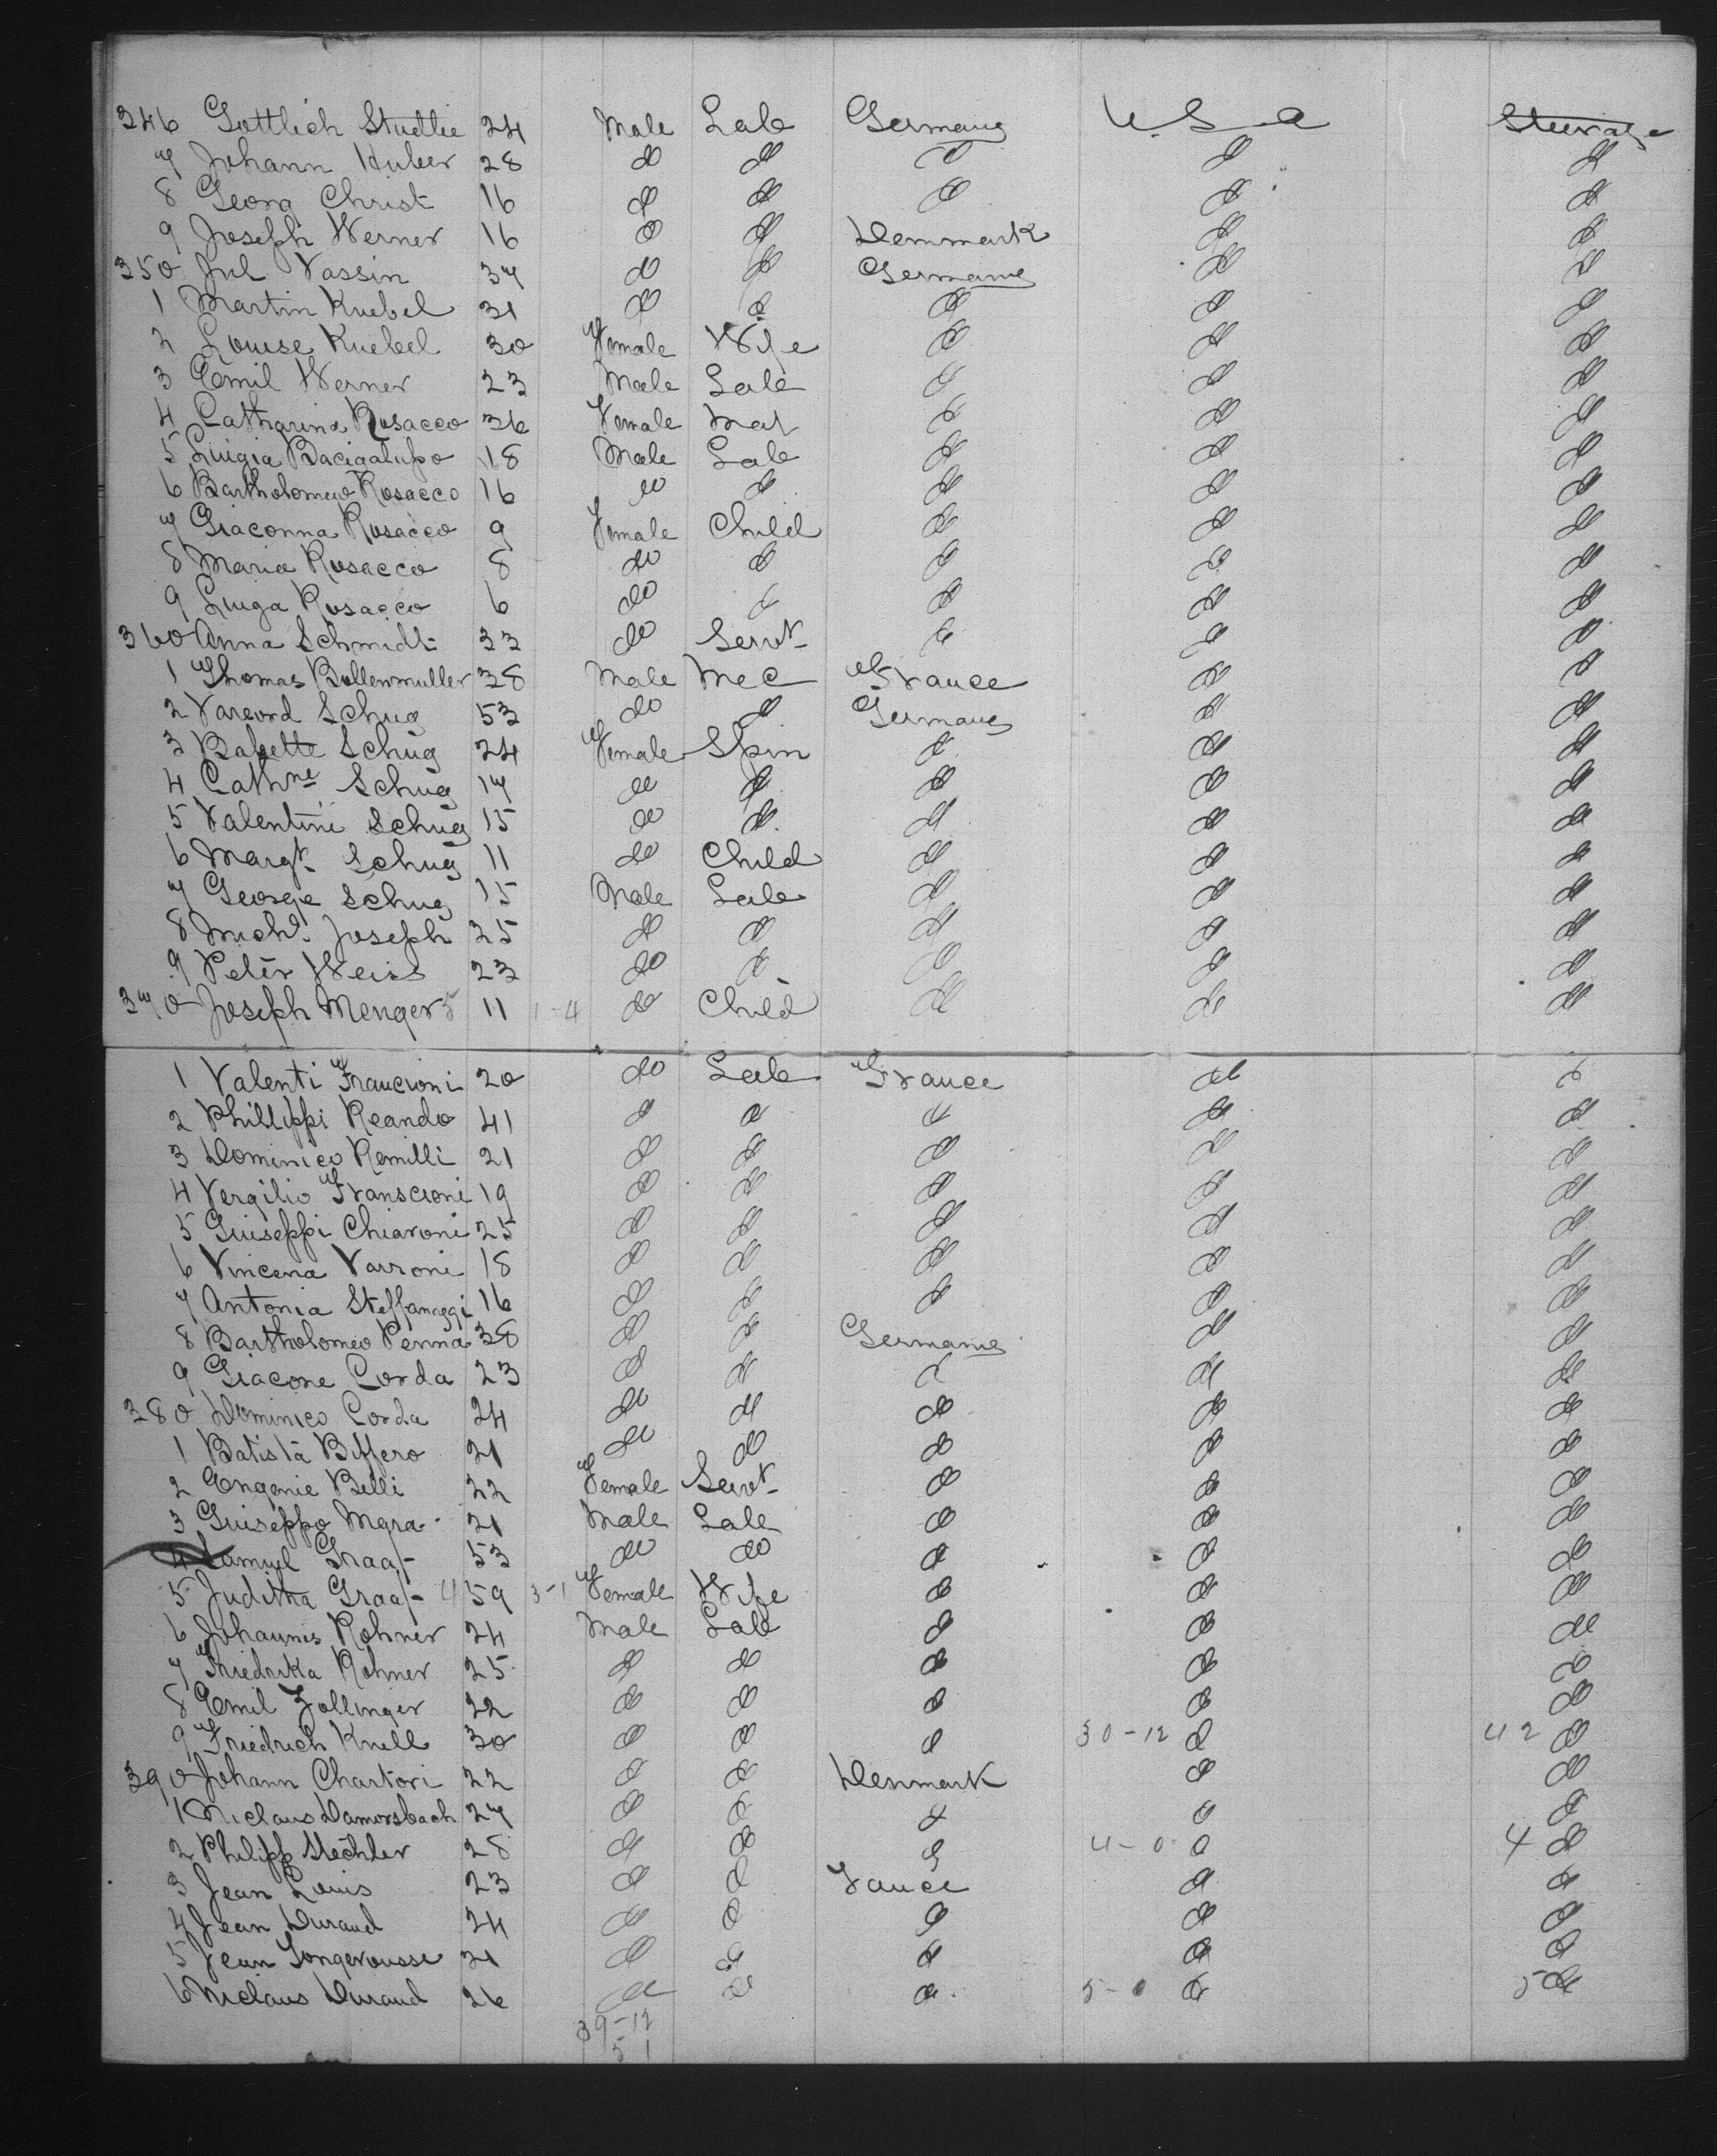 346 Gottlieb Studlie 24 Male Lab Germany U.S.A Steerage
7 Johann Huber 28 do do do do do
8 Georg Christ 16 do do do do do
9 Joseph Werner 16 do do Denmark do do
350 Jul Vassin 37 do do Germany do do
1 Martin Kuebel 31 do do do do do
2 Louise Kuebel 30 Female Wife do do do
3 Emil Werner 23 Male Lab do do do
4 Catharina Rosacco 36 Female Mat do do do
5 Luigia Bacigalupo 18 Male Lab do do do
6 Bartholomeo Rosacco 16 do do do do do
7 Giaconna Rosacco 9 Female Child do do do
8 Maria Rosacco 8 do do do do do
9 Luiga Rosacco 6 do do do do do
360 Anna Schmidt 33 do Servt do do do
1 Thomas Bollenmuller 38 Male Mec France do do
2 Schug 53 do do Germany do do
3 Babette Schug 24 Female Spin do do do
4 Cathne Schug 17 do do do do do
5 Valentini Schug 15 do do do do do
6 Margt Schug 11 do Child do do do
7 George Schug 15 Male Lab do do do
8 Michl. Joseph 25 do do do do do
9 Peter Weiss 23 do do do do do
370 Joseph Menger 5 11 1-4 do Child do do do
1 Valenti Francioni 20 do Lab France do do
2 Phillippi Reando 41 do do do do do
3 Dominico Remilli 21 do do do do do
4 Vergilio Franscioni 19 do do do do do
5 Guiseppi Chiaroni 25 do do do do do
6 Vincena Varroni 18 do do do do do
7 Antonia 16 do do do do do
8 Bartholomeo Penna 38 do do Germany do do
9 Giacone Corda 23 do do do do do
380 Dominico Corda 24 do do do do do
1 Batista Biffero 21 do do do do do
2 Engenie Belli 22 Female Servt do do do
3 Guiseppo Mgra 21 Male Lab do do do
4 Samuel Graaf 53 do do do do do
5 Juditha Graaf 4 59 3-1 Female Wife do do do
6 Johannis Rohner 24 Male Lab do do do
7 Friedrika Rohner 25 do do do do do
8 Emil Zollinger 22 do do do do do
9 Friedrich Knell 30 do do do 30-12 do 42 do
390 Johann Chartori 22 do do Denmark do do
1 Niclaus Damorsbach 27 do do do do do
2 Philipp Stechler 28 do do do 4-0 do 4 do
3 Jean Louis 23 do do France do do
4 Jean Duraud 24 do do do do do
5 Jean Longerousse 21 do do do do do
6 Niclaus Duraud 26 do do do 5-0 do 5 do
39-12
51